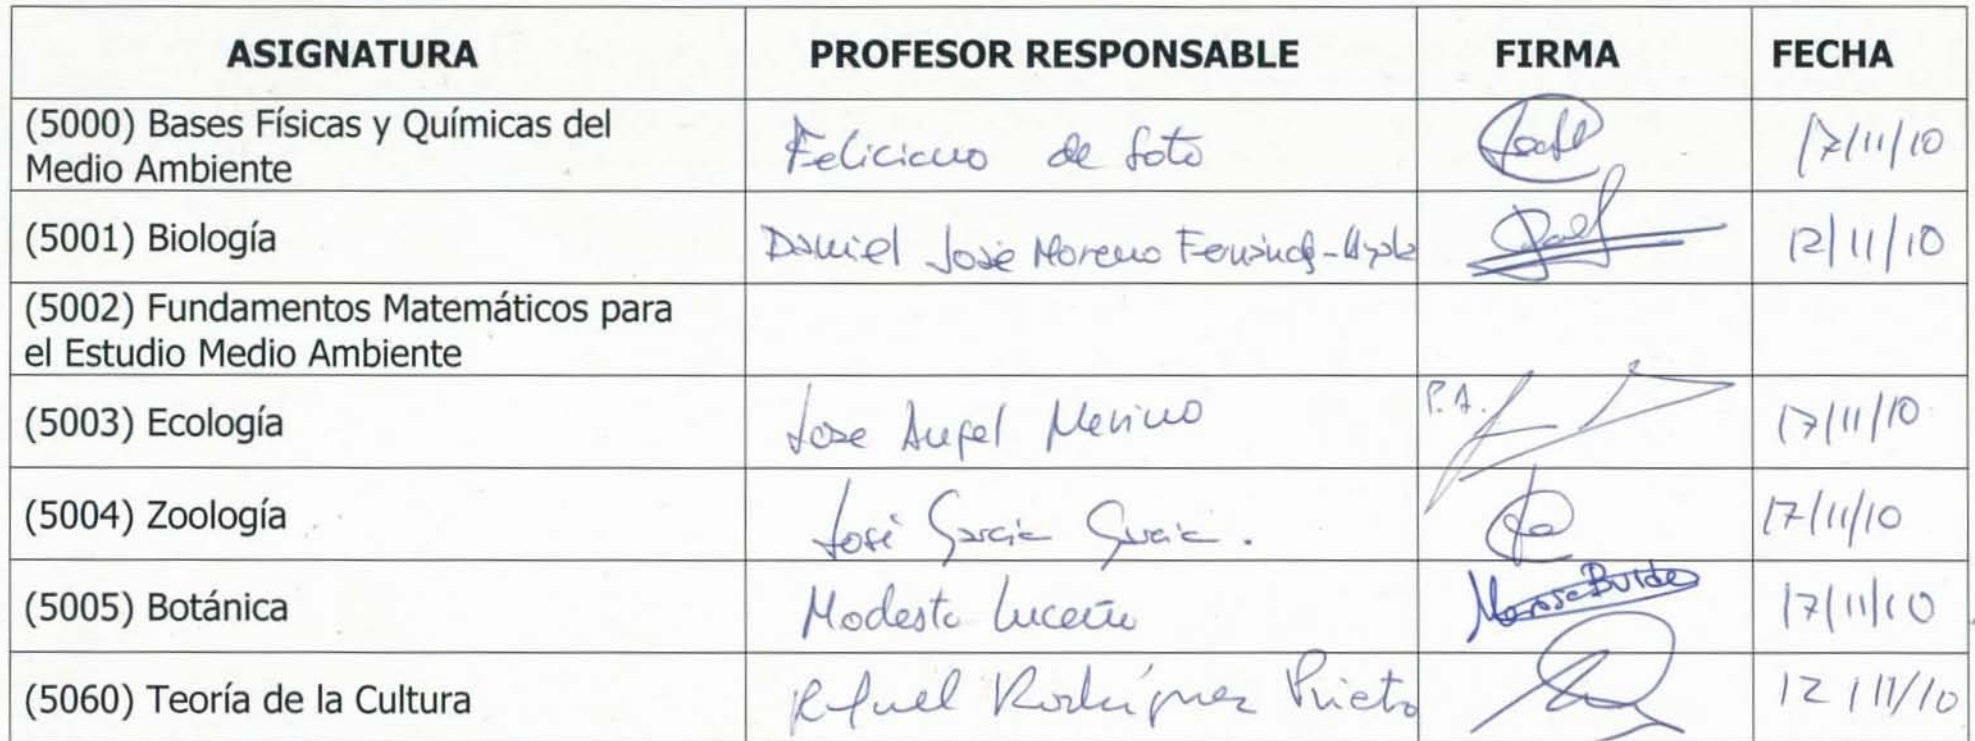 ASIGNATURA PROFESOR RESPONSABLE FIRMA FECHA
(5000) Bases Físicas y Químicas del
Medio Ambiente
Feliciano de Soto
17/11/10
(5001) Biología
Daniel José Moreno
12/11/10
(5002) Fundamentos Matemáticos para
el Estudio Medio Ambiente
(5003) Ecología
Jose Angel Merino
P.A.
17/11/10
(5004) Zoología
José García García.
17/11/10
(5005) Botánica
Modesto Luceño
17/11/10
(5060) Teoría de la Cultura
Rafael Rodríguez Prieto
12/11/10